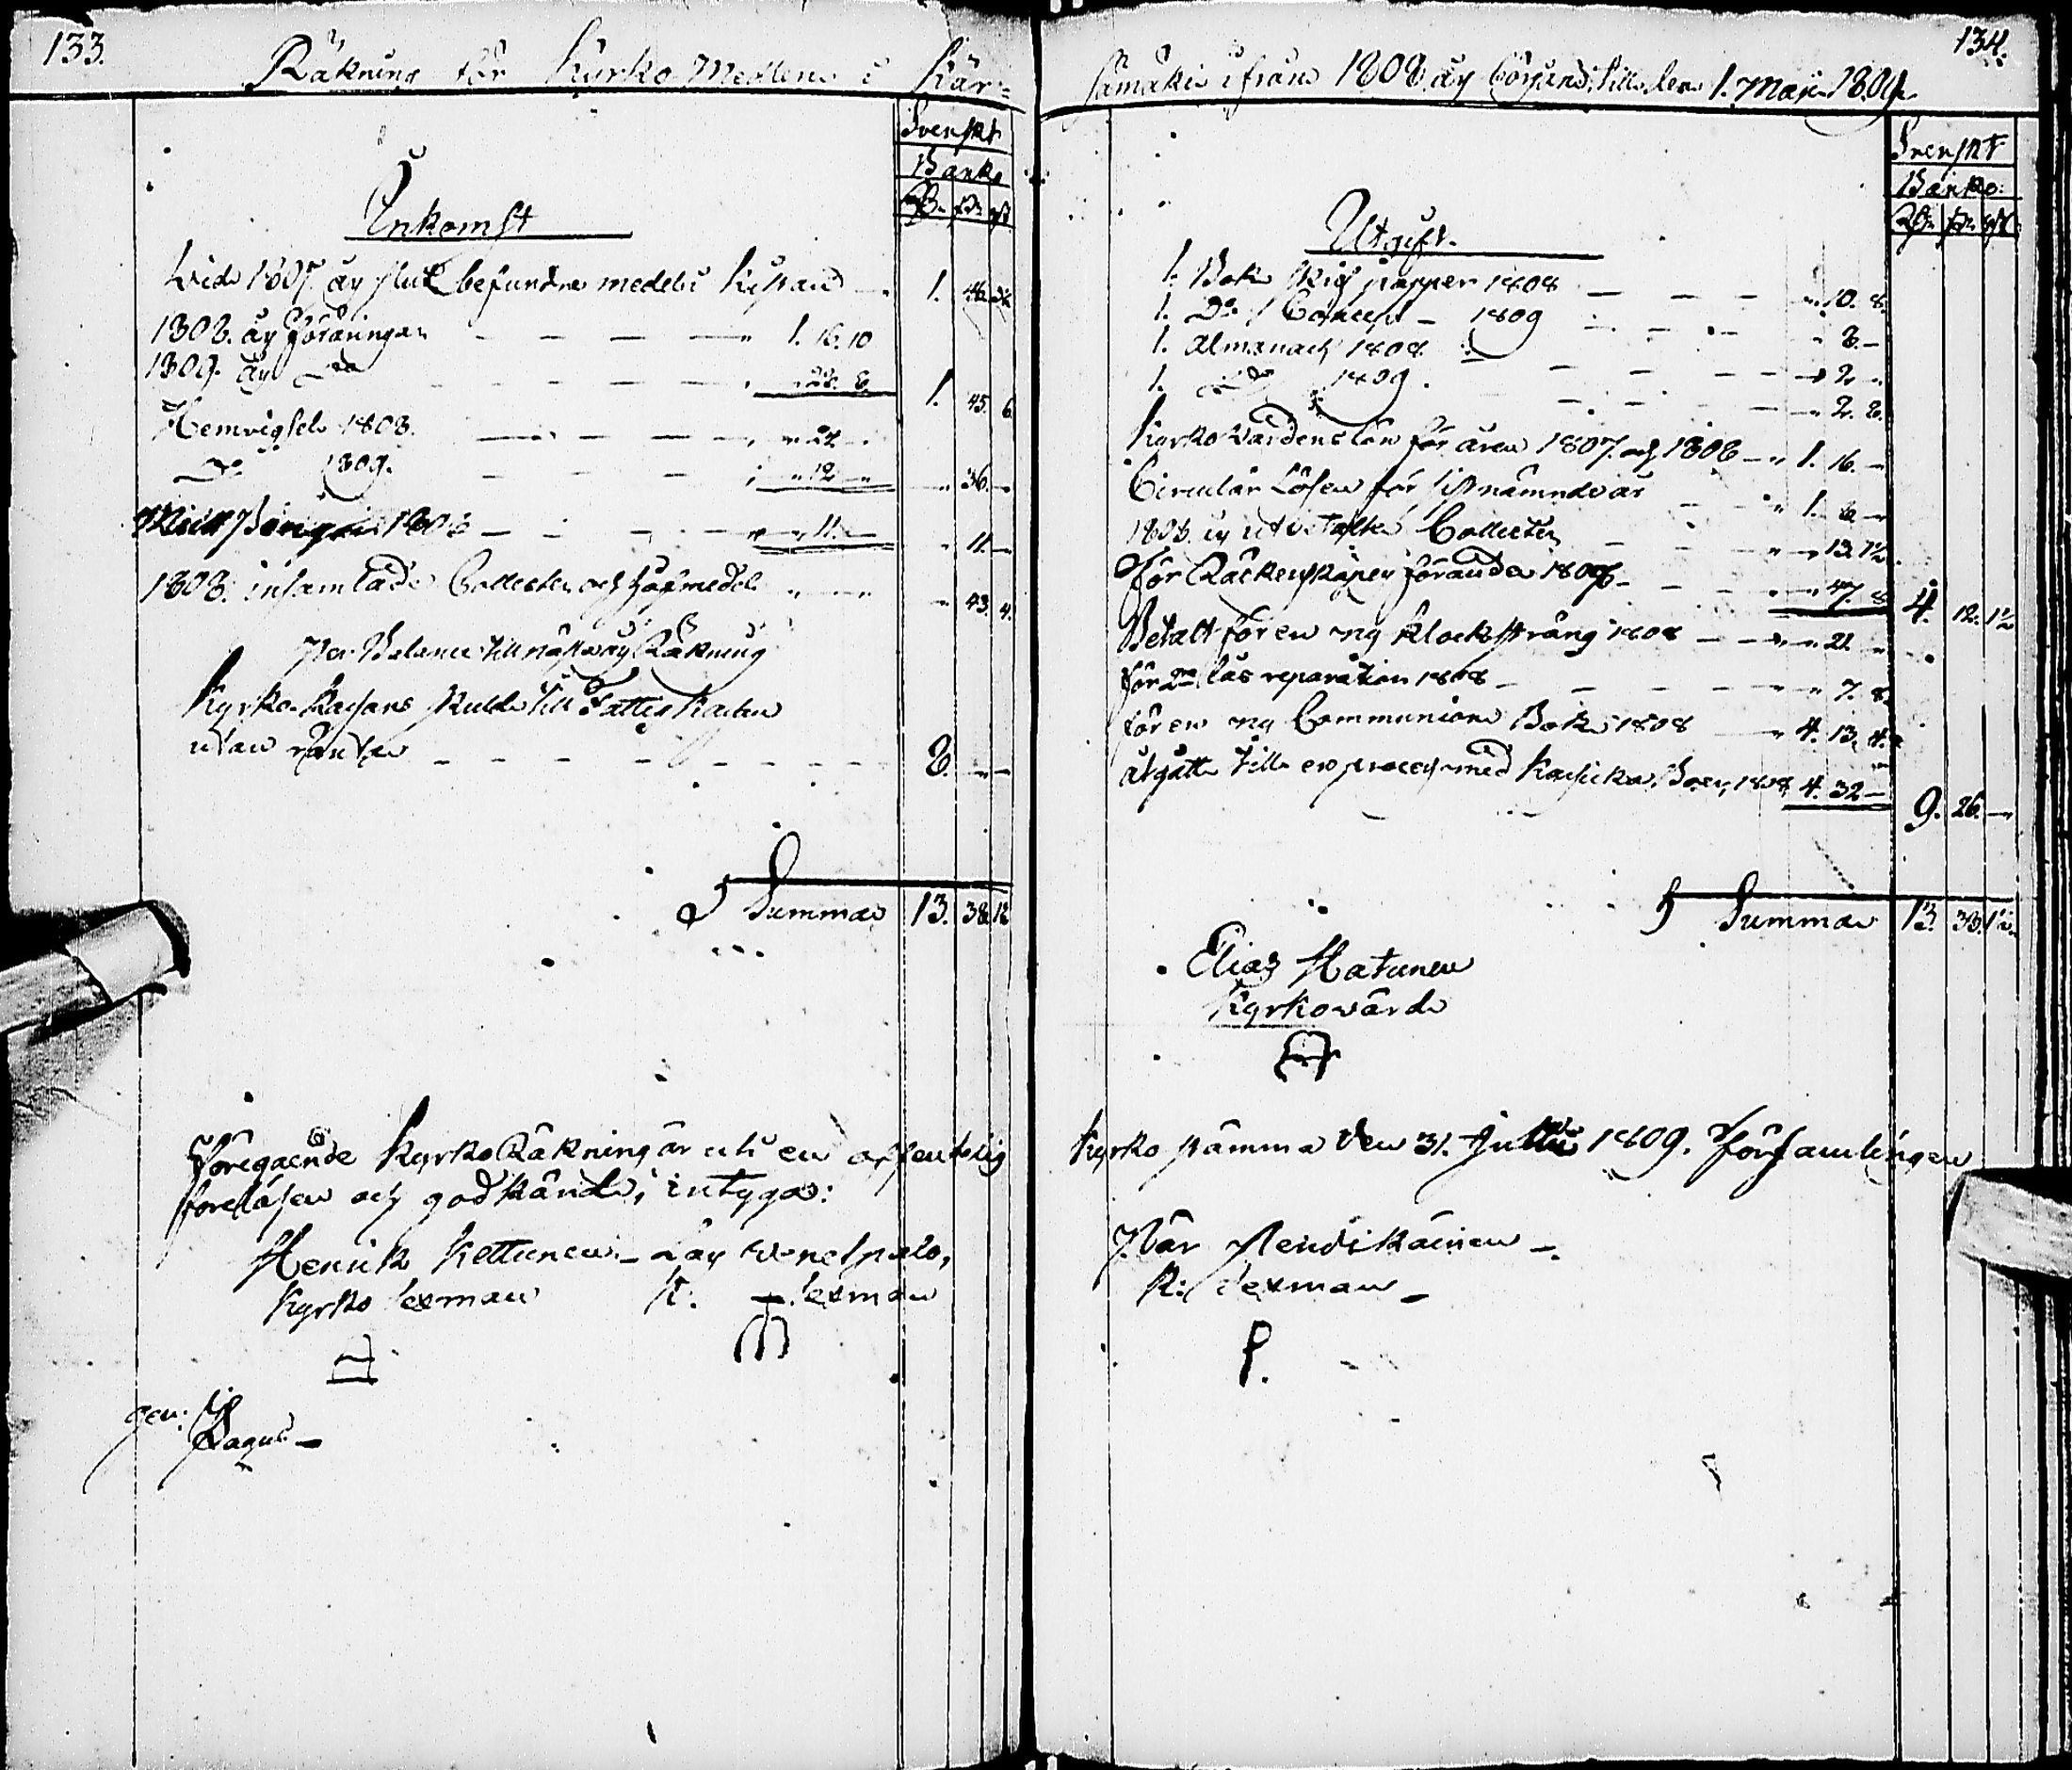 133.
Räkning för Kyrko Medlen i Kär=
Svenskt
Banko
Inkomst
Rd. sk. rst
Vid 1807 års slut befundne medel i Kistan 1. 46.
1808. års föräringar 1. 16. 10
1809. års Do 28. 8. 1. 45. 6.
Hemvigsel 1808. 24
Do 1809. 12 36.
1808 11. 11.
1808. insamlade Collecter och håfmedel 43. 4.
Per Balance till nästa års Räkning
Kyrko-Kassans skuld till Fattig Kassan
utan ränta 8.
Summa 13. 38. 1½
Föregående Kyrko Räkning är uti en offentelig
föreläsen och godkänd, intyga:
Henrik Kettunen Lars
Kyrko sexman K. sexman
134.
samäki ifrån 1808 års början till den 1. Maji 1809.
Svenskt
Banko:
Rd. sk. rst
Utgift.
1. Bok skrif papper 1808 10. 8.
1. Do Concept 1809 8.
1. Almanach 1808. 2.
1. Do 1809. 2. 8.
Kyrkovärdens lön för åren 1807 och 1808 1. 16.
Circulär Lösen för sistnämnde år 1.
1808 års utbetalte Collecter 13. 1½
För Räkenskapers förande 1808 47. 8. 4. 12. 1½
Betalt för en ny klocksträng 1808 21.
för lås reparation 1808 7. 8.
för en ny Communion Bok 1808 4. 13. 4.
åtgått till en process med Bоer, 1808 4. 32 9. 26.
Summa 13. 38. 1½
Elias Hatunen
Kyrkovärd
Kyrko stämma den 31. Julii 1809. Församlingen
Pär
K: sexman